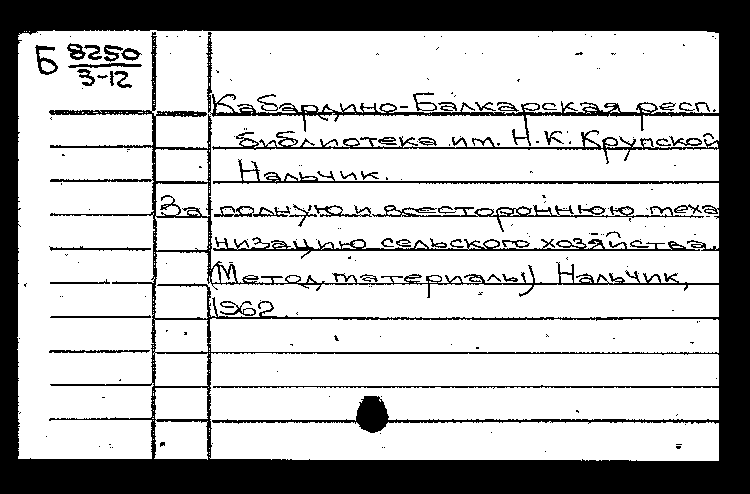 Б 8250
3-12
Кабардино-Балкарская респ.
библиотека им. Н.К. Крупской
Нальчик.
За полную и всестороннюю меха
низацию сельского хозяйства.
(Метод. материалы). Нальчик,
1962.